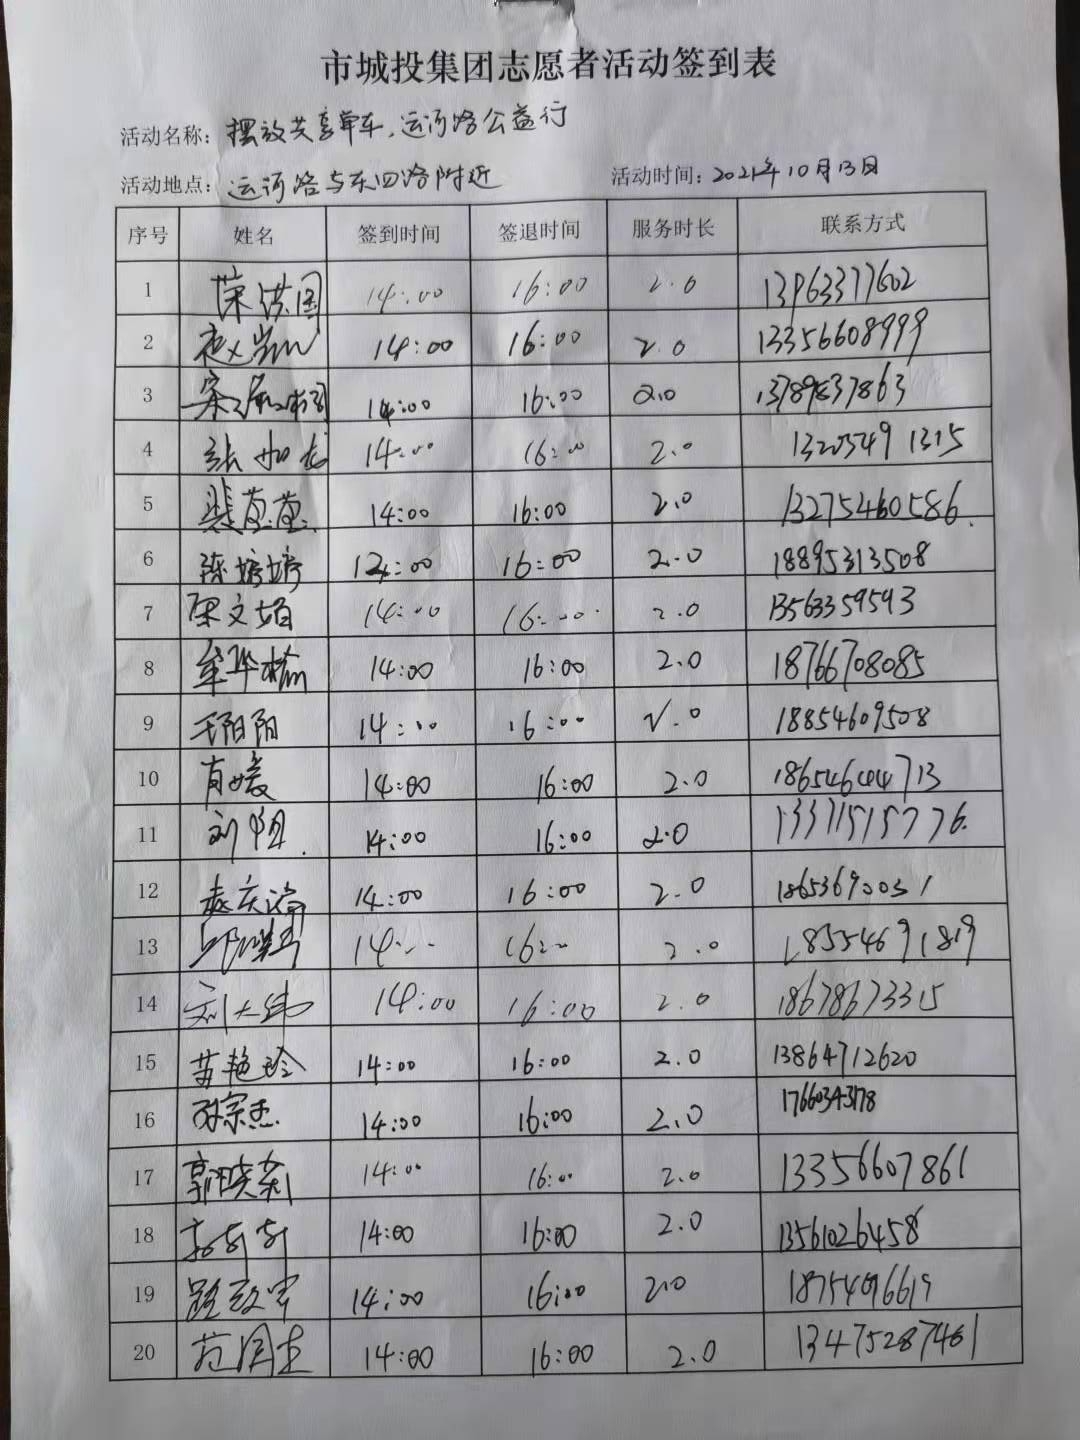 市城投集团志愿者活动签到表
活动名称：摆放共享单车，运河路公益行
活动地点：运河路与东四路附近 活动时间：2021年10月13日
序号 姓名 签到时间 签退时间 服务时长 联系方式
1 14:00 16:00 2.0 13963377602
2 14:00 16:00 2.0 13356608999
3 14:00 16:00 2.0 13789837863
4 张加龙 14:00 16:00 2.0 13203491315
5 14:00 16:00 2.0 13275460586
6 陈婷婷 14:00 16:00 2.0 18895313508
7 14:00 16:00 2.0 13563359593
8 14:00 16:00 2.0 18766708085
9 王阳阳 14:00 16:00 2.0 18854609508
10 肖媛 14:00 16:00 2.0 18654644713
11 刘阳 14:00 16:00 2.0
12 14:00 16:00 2.0 18653690051
13 14:00 16:00 2.0 18554691819
14 刘大纬 14:00 16:00 2.0 18678673315
15 苏艳玲 14:00 16:00 2.0 13864712620
16 孙宗杰 14:00 16:00 2.0 17660343178
17 郭晓莉 14:00 16:00 2.0 13356607861
18 14:00 16:00 2.0 13561026458
19 路政军 14:00 16:00 2.0 18754696619
20 范国圭 14:00 16:00 2.0 13475287461